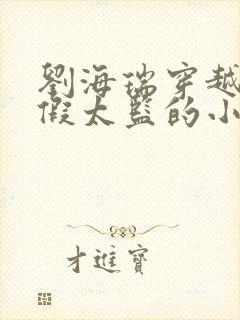 劉海瑞穿越
假太監的小
才進寶